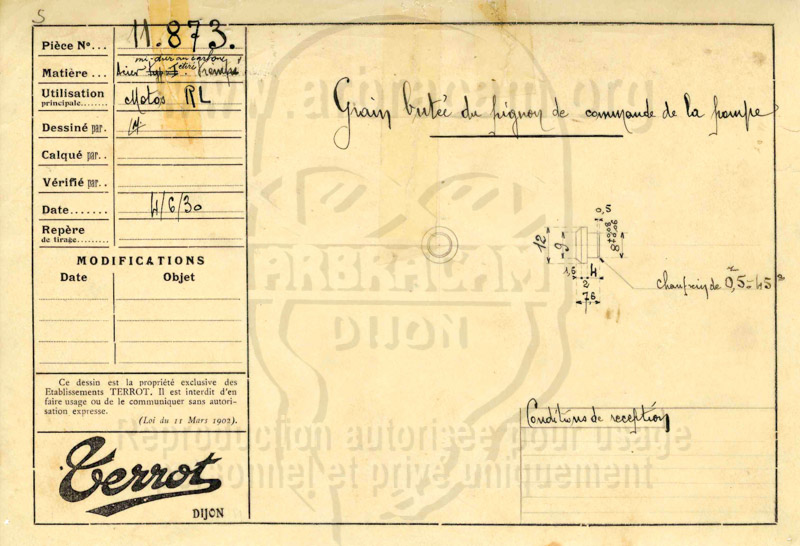 S
Pièce No... 11.873.
mi-dur au carbone
Matière... Acier étiré. Trempé
Utilisation
principale........ Motos RL
Dessiné par.
Calqué par..
Vérifié par..
Date....... 4/6/30
Repère
de tirage.........
MODIFICATIONS
Date Objet
Ce dessin est la propriété exclusive des
Etablissements TERROT. Il est interdit d'en
faire usage ou de le communiquer sans autori-
sation expresse.
(Loi du 11 Mars 1902).
Terrot
DIJON
Grain butée du pignon de commande de la pompe
0,5
12
9
8
1,6
4
2
7,6
chanfrein de 0,5 - 45°
Conditions de reception
ARBRACAM
DIJON
Reproduction autorisée pour usage
personnel et privé uniquement